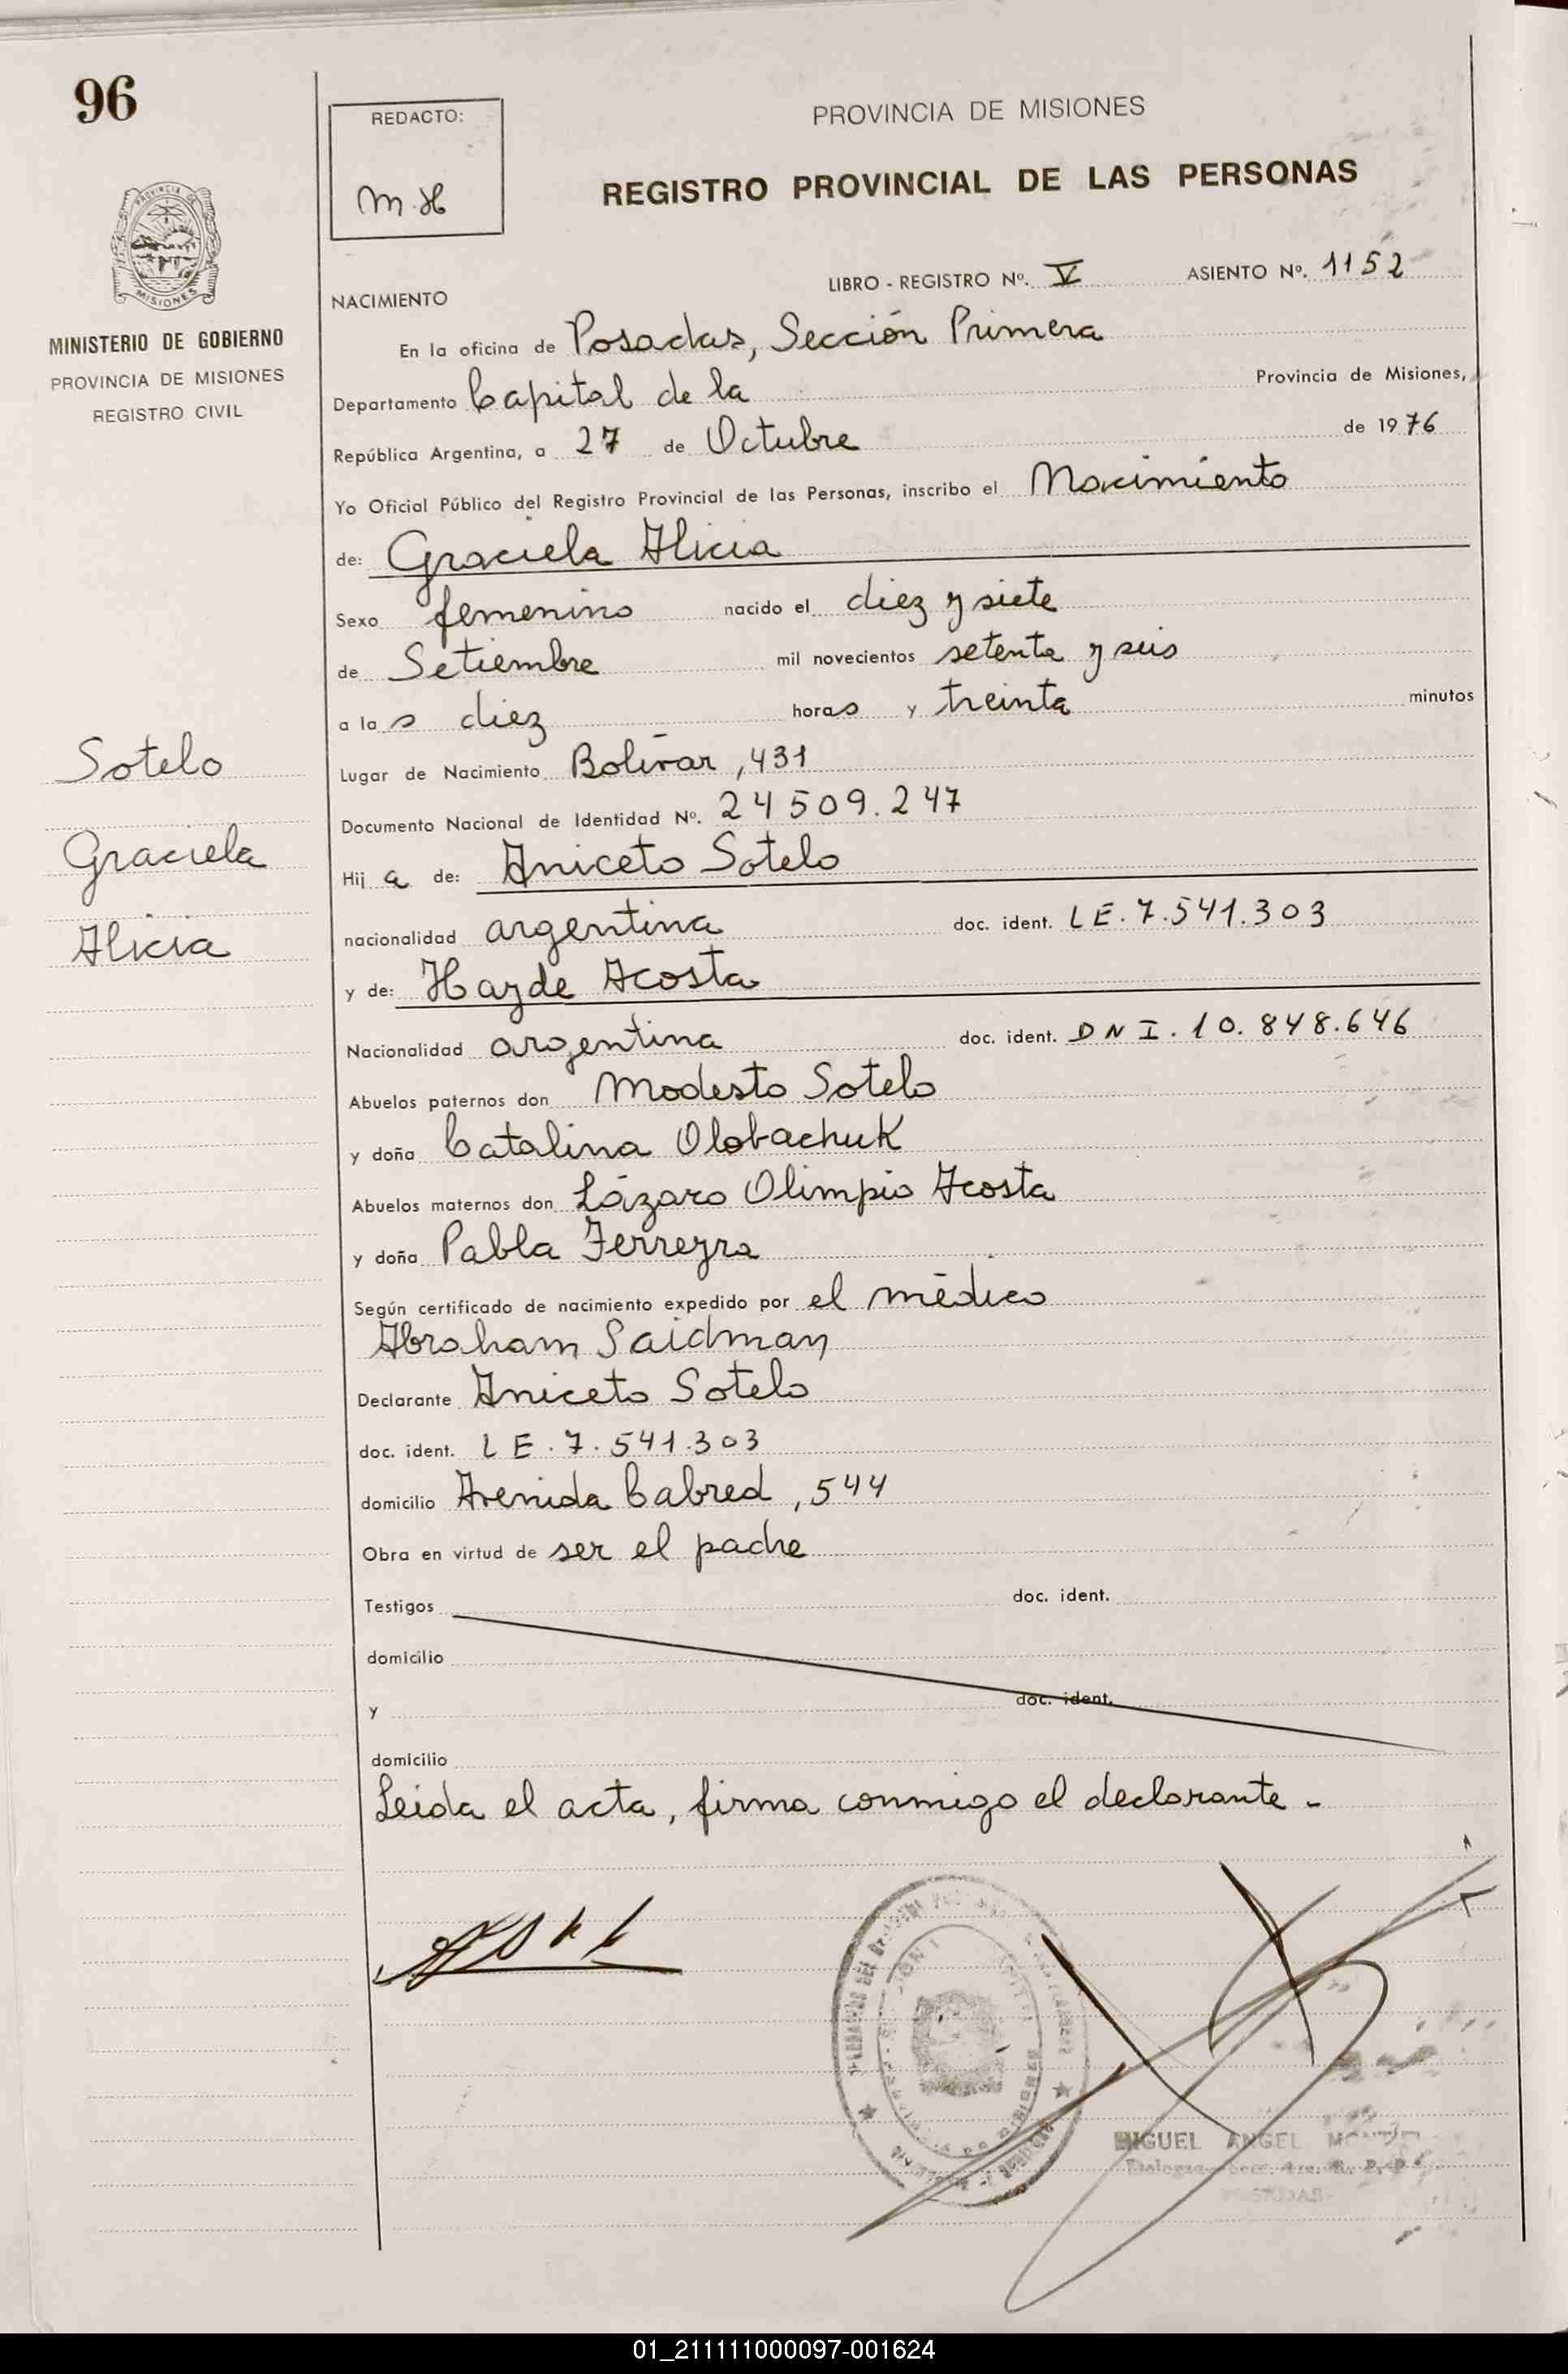 96
REDACTO:
M.H
PROVINCIA DE MISIONES
REGISTRO PROVINCIAL DE LAS PERSONAS
MISIONES
MINISTERIO DE GOBIERNO
PROVINCIA DE MISIONES
REGISTRO CIVIL
LIBRO - REGISTRO Nº. V ASIENTO Nº. 1152
NACIMIENTO
En la oficina de Posadas, Sección Primera
Departamento Capital de la Provincia de Misiones,
República Argentina, a 27 de Octubre de 1976
Yo Oficial Público del Registro Provincial de las Personas, inscribo el Nacimiento
de: Graciela Alicia
Sexo femenino nacido el diez y siete
de Setiembre mil novecientos setenta y seis
a las diez horas y treinta minutos
Sotelo
Graciela
Alicia
Lugar de Nacimiento Bolívar, 431
Documento Nacional de Identidad Nº. 24509.247
Hija de: Aniceto Sotelo
nacionalidad argentina doc. ident. LE. 7.541.303
y de: Hayde Acosta
Nacionalidad argentina doc. ident. DNI. 10.848.646
Abuelos paternos don Modesto Sotelo
y doña Catalina Olobachuk
Abuelos maternos don Lázaro Olimpio Acosta
y doña Pabla Ferreyra
Según certificado de nacimiento expedido por el médico
Abraham Saidman
Declarante Aniceto Sotelo
doc. ident. LE. 7.541.303
domicilio Avenida Cabred, 544
Obra en virtud de ser el padre
Testigos doc. ident.
domicilio
y doc. ident.
domicilio
Leida el acta, firma conmigo el declarante.-
MIGUEL ANGEL
01_211111000097-001624